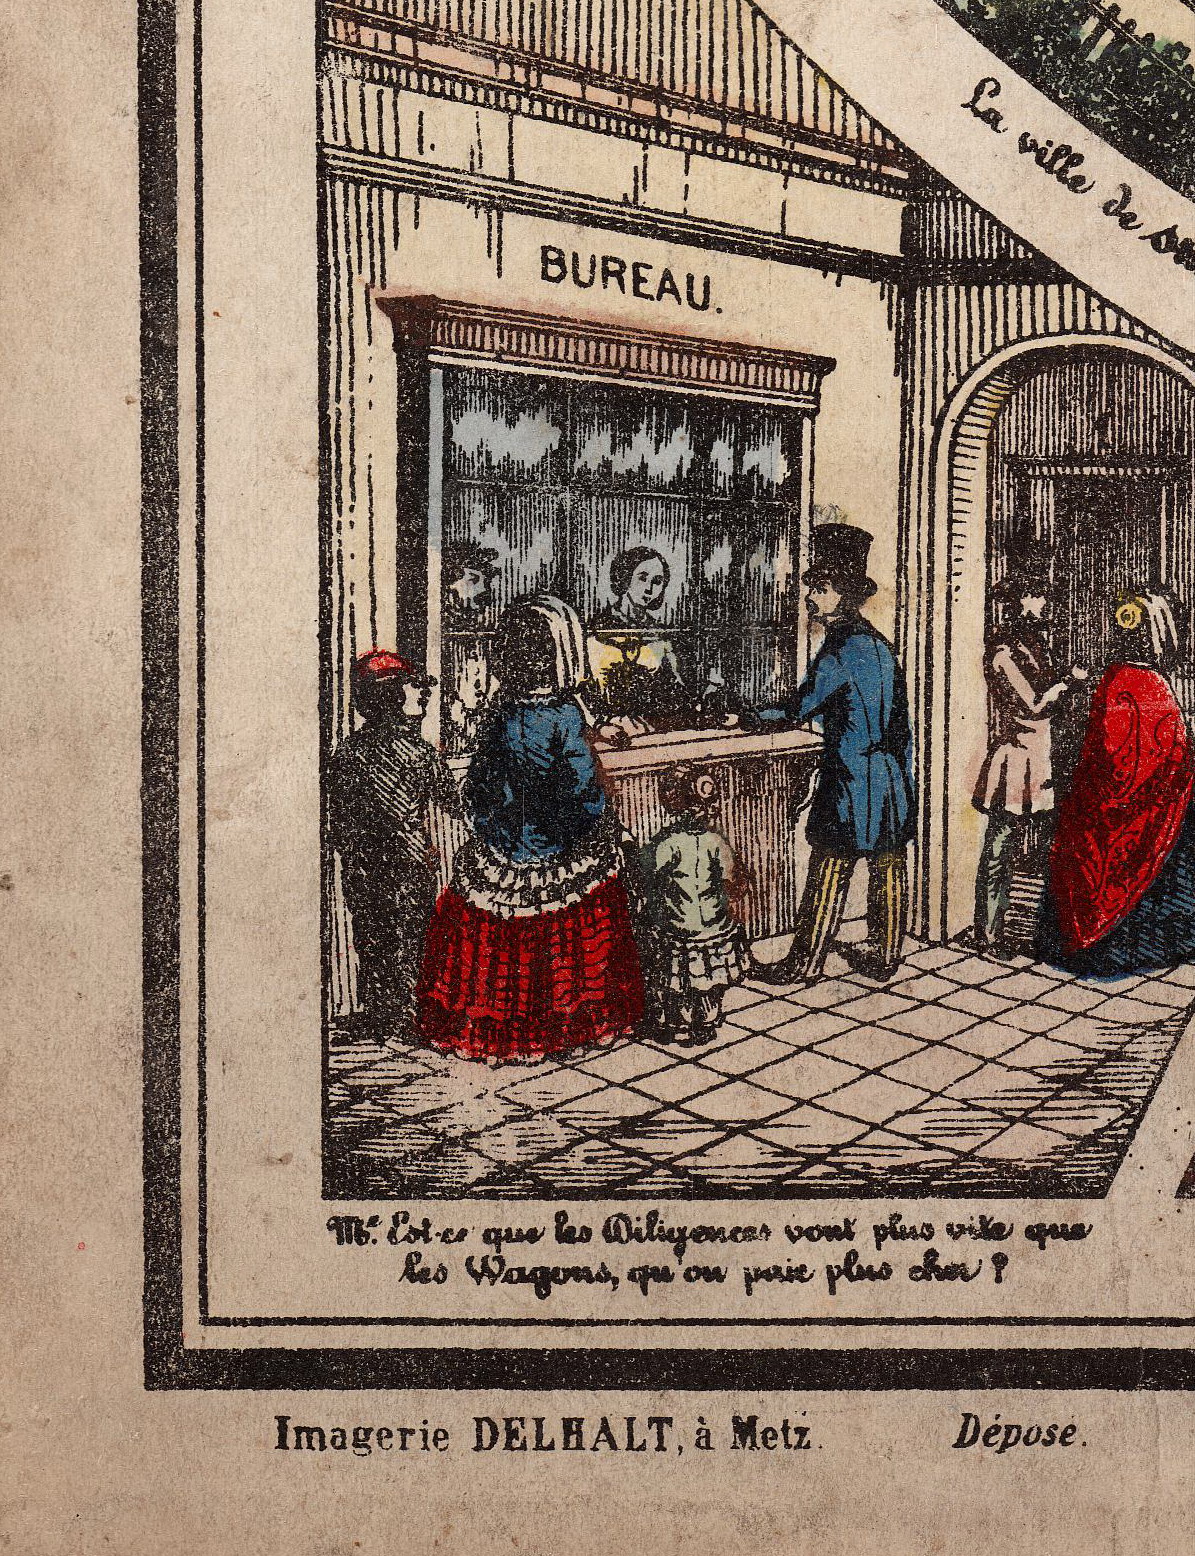 La ville de
BUREAU.
Mr. Est-ce que les Diligences vont plus vite que
les Wagons, qu'on paie plus cher ?
Imagerie DELHALT, à Metz. Déposé.